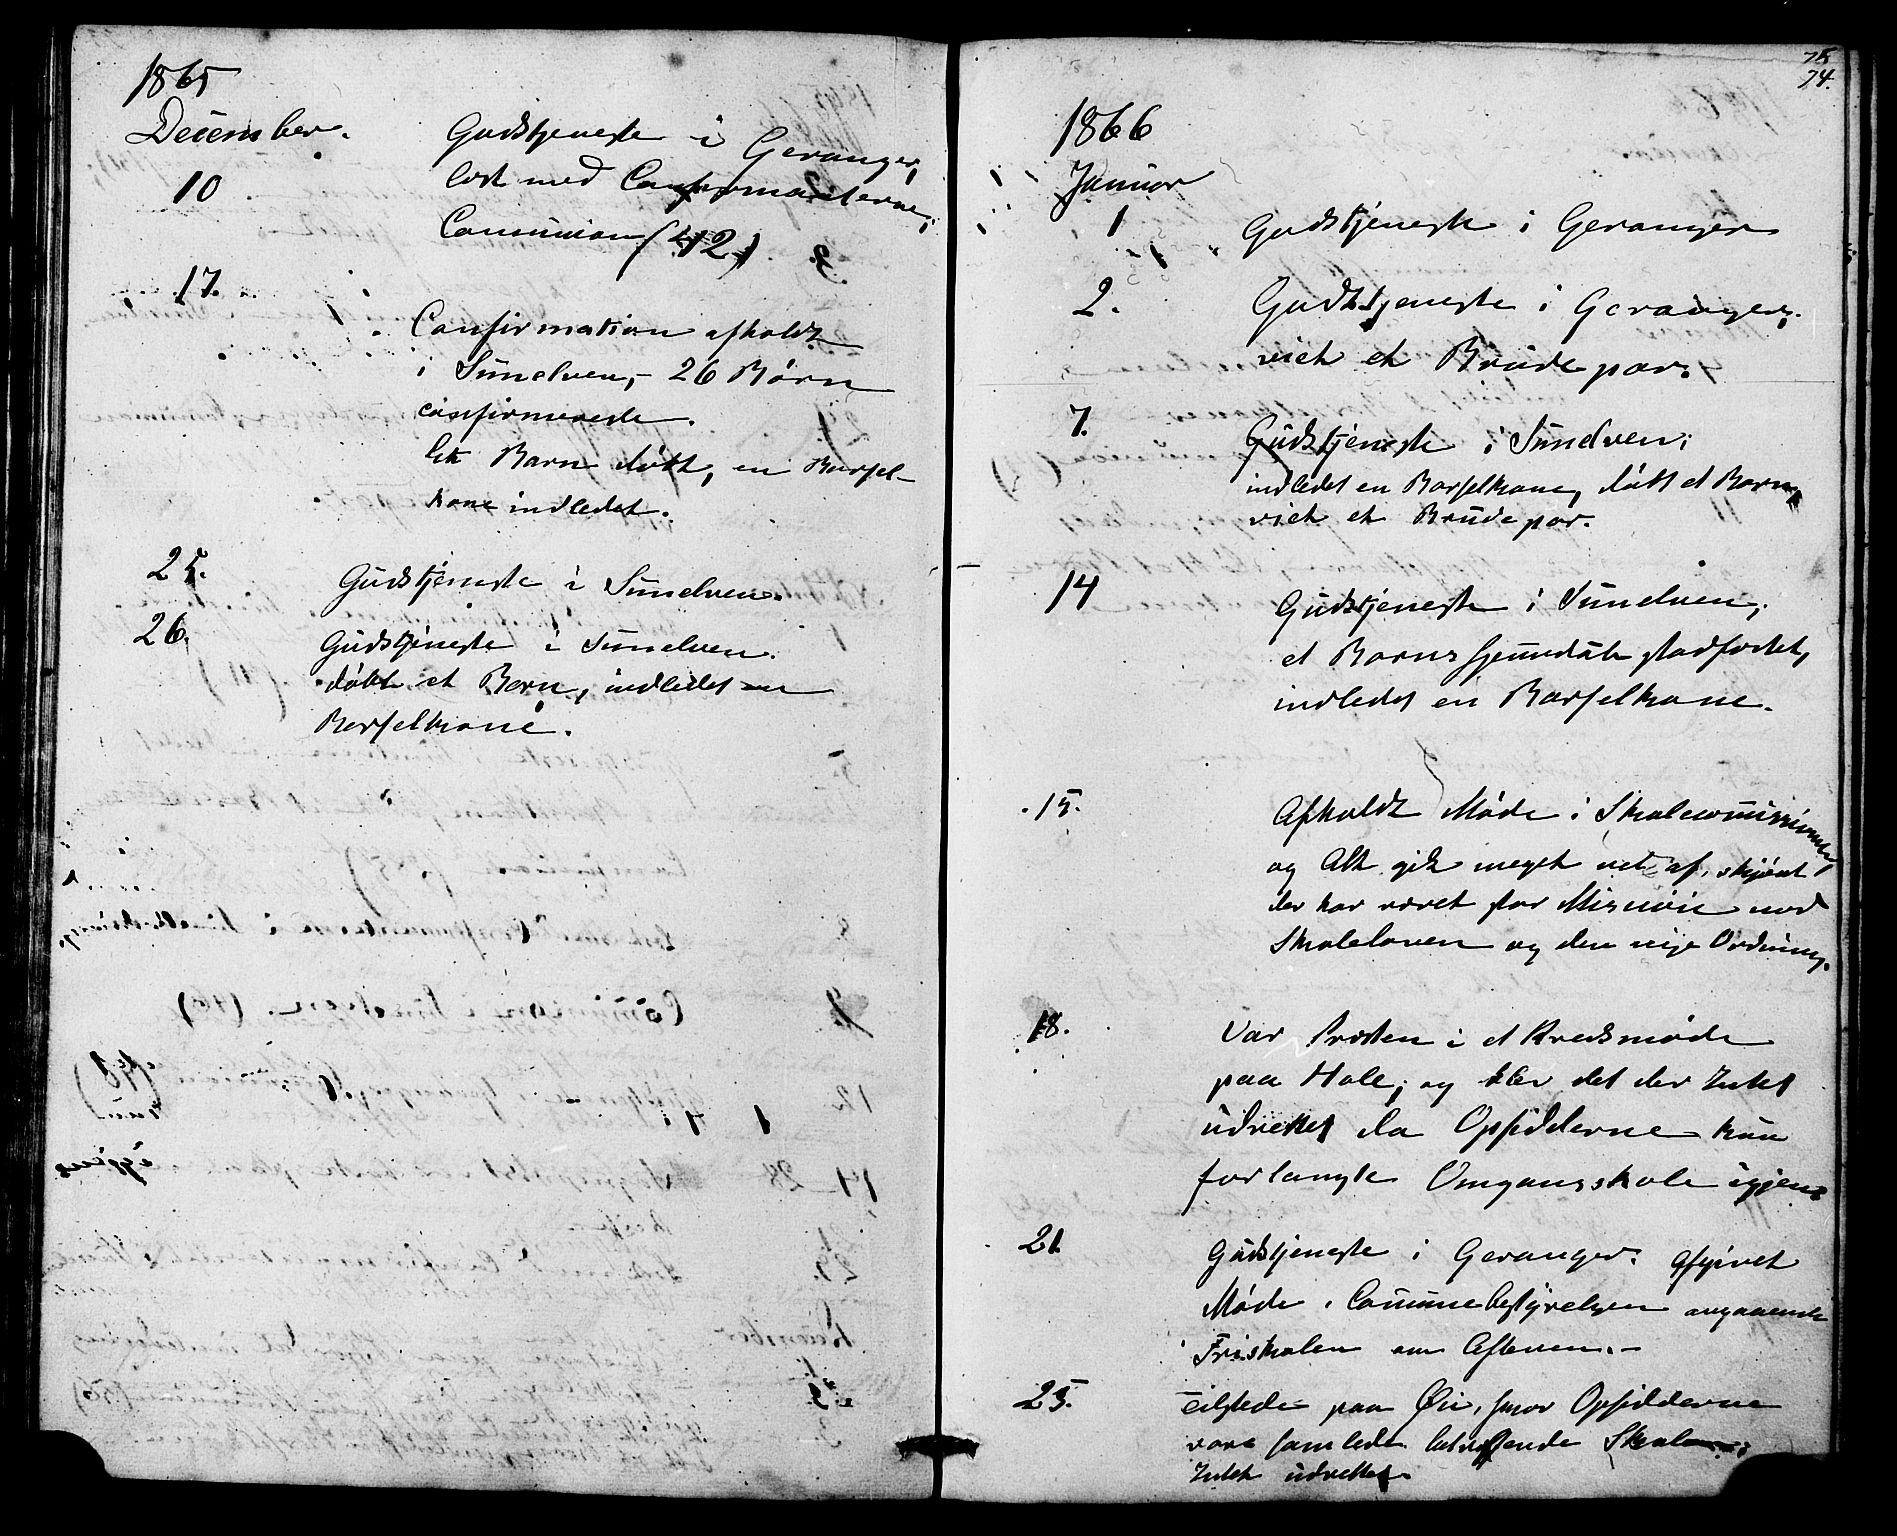 1865
December.
10
Gudstjeneste i Geranger,
læst med Confirmanterne,
Communion (42)
17.
Confirmation afholdt
i Sunelven, 26 Børn
confirmerede.
Et Barn døbt, en Barsel-
kone indledet.
25.
Gudstjeneste i Sunelven.
26.
Gudstjeneste i Sunelven.
døbt et Barn, indledet en
Barselkone.
74.
1866
Januar
1
Gudstjeneste i Geranger
2.
Gudstjeneste i Geranger,
viet et Brudepar.
7.
Gudstjeneste i Sunelven;
indledet en Barselkone, døbt et Barn,
viet et Brudepar.
14
Gudstjeneste i Sunelven,
et Barns hjemmedåb stadfæstet,
indledet en Barselkone.
15.
Afholdt Møde i Skolecommissionen,
og Alt gik meget vel af, skjønt
der har været stor Misnøie mod
Skoleloven og den nye Ordning.
18.
Var Præsten i et Kredsmøde
paa Hole, og blev det der Intet
udrettet da Opsidderne kun
forlangte Omgangsskole igjen.
21.
Gudstjeneste i Geranger. Afgivet
Møde i Communebestyrelsen angaaende
Friskolen om Aftenen.-
25.
Tilstede paa Øie, hvor Opsidderne
vare samlede betræffende Skolen;
Intet udrettet.